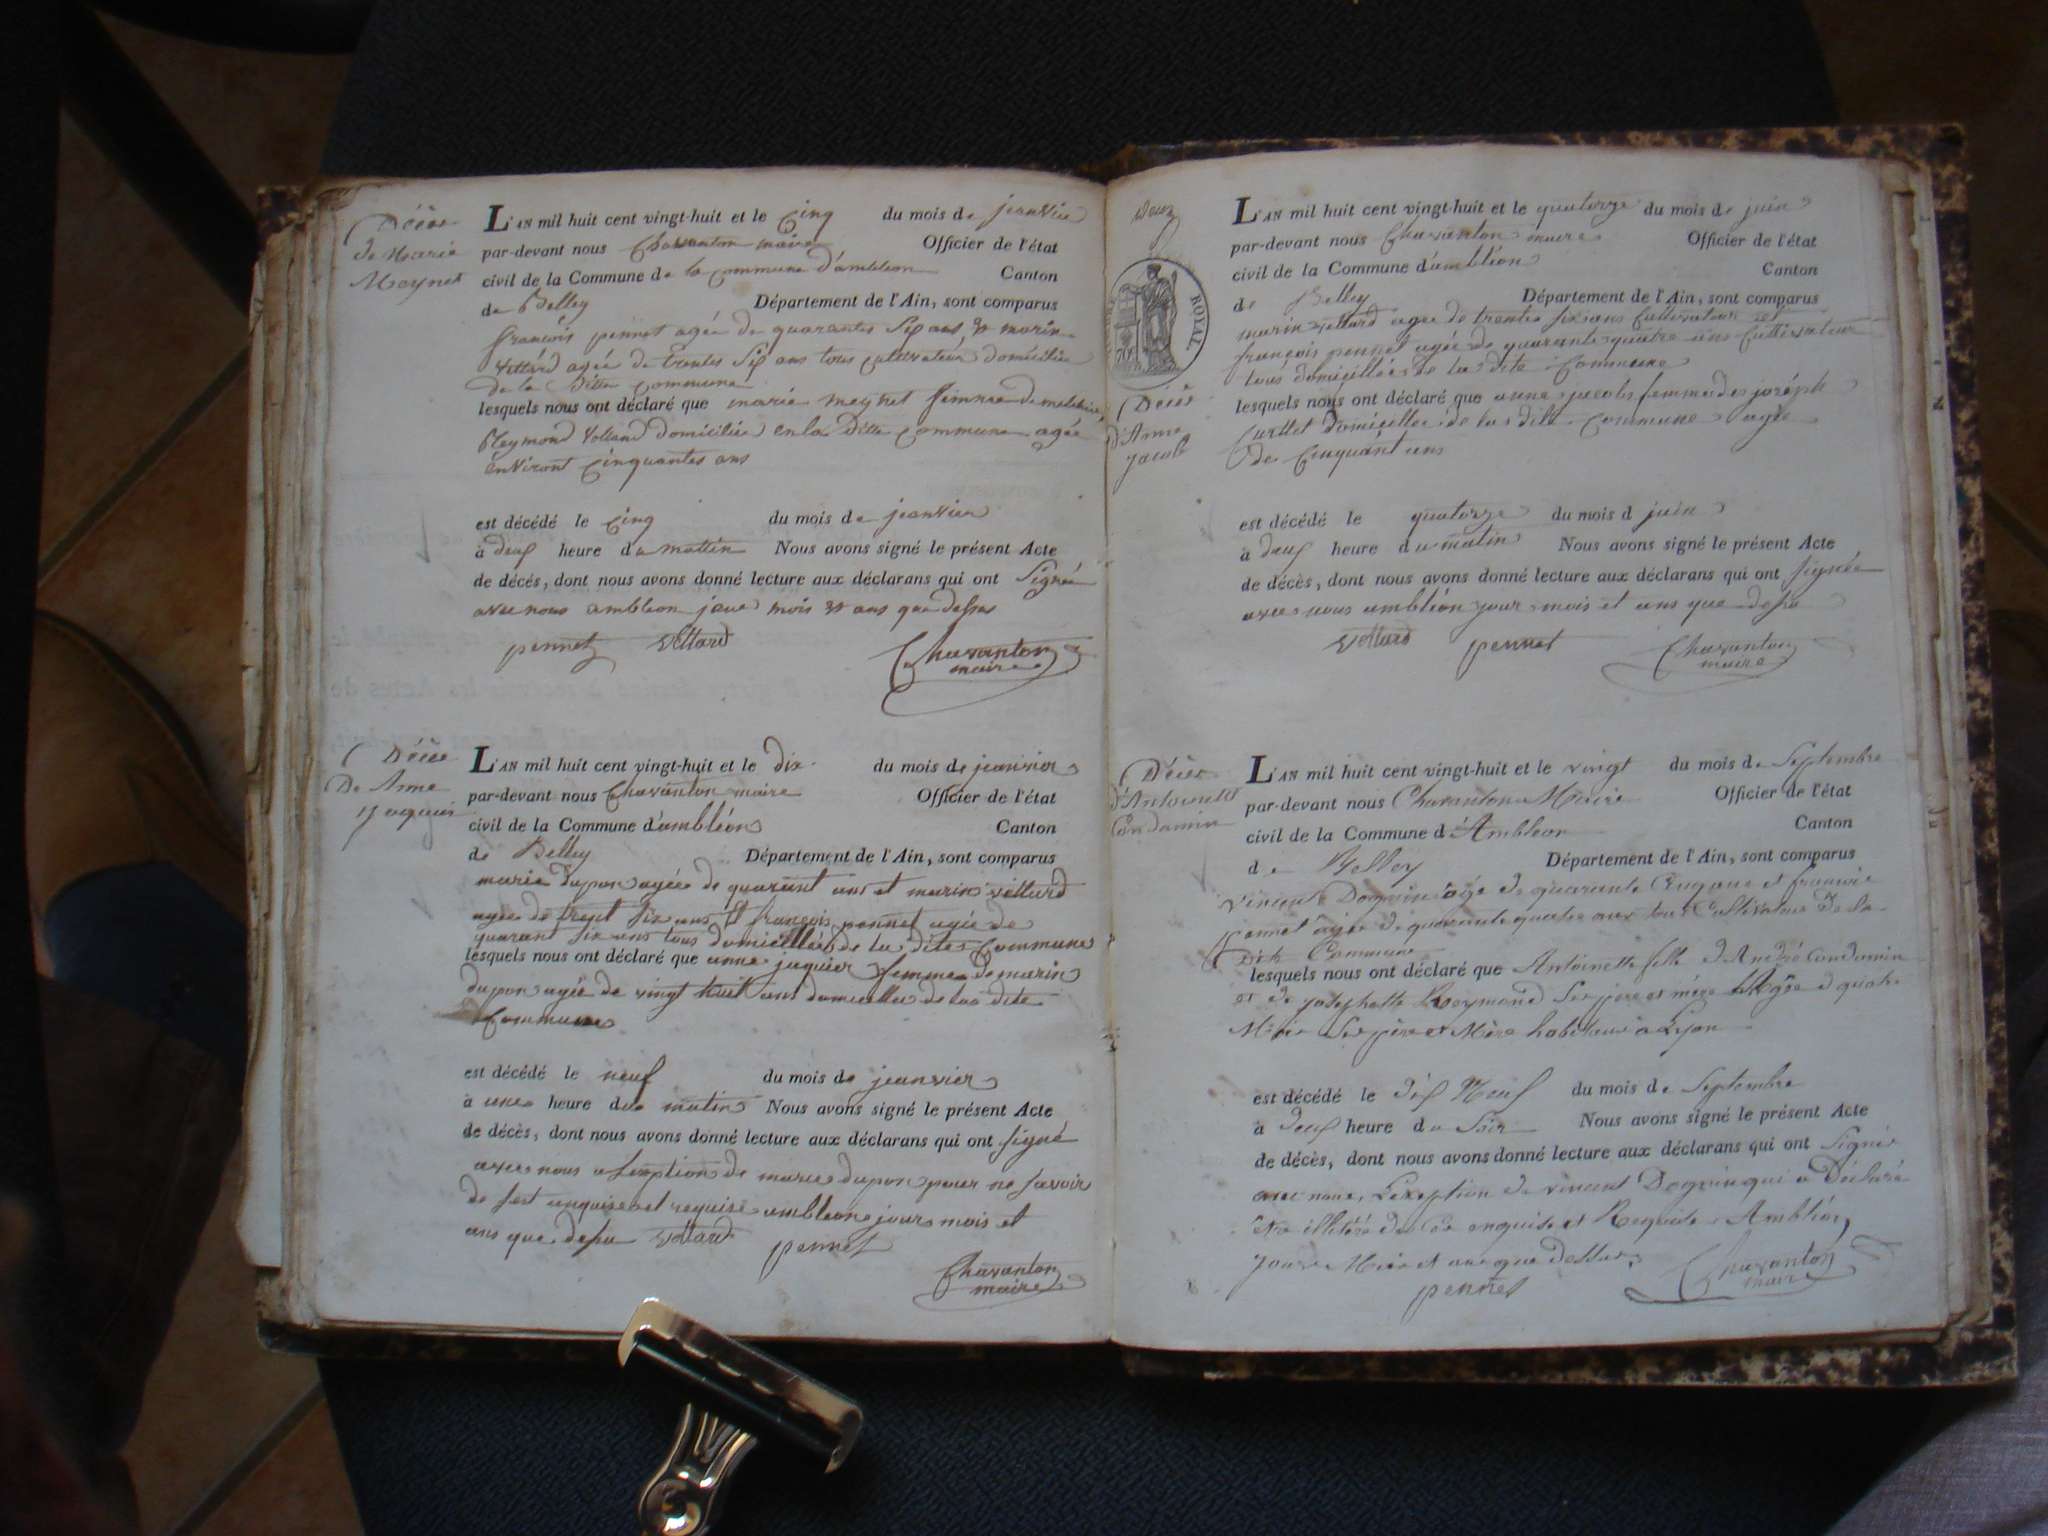 Décès
de Marie
Meynet
L'AN mil huit cent vingt-huit et le cinq du mois de jeanvier
par-devant nous Chavanton maire Officier de l'état
civil de la Commune de la commune d'ambléon Canton
de Belley Département de l'Ain, sont comparus
françois pennet agée de quarantes six ans et marin
vettard agée de trentes six ans tous cultivateur domicilié
de la ditte commune
lesquels nous ont déclaré que marie meynet femme de
Reymond domiciliée en la ditte commune agée
environt cinquantes ans
est décédé le cinq du mois de jeanvier
à deux heure du mattin Nous avons signé le présent Acte
de décès, dont nous avons donné lecture aux déclarans qui ont signée
avec nous ambleon jour mois et ans que dessus
pennet vettard Chavanton
maire
Décès
De Anne
Jaquier
L'AN mil huit cent vingt-huit et le dix du mois de jeanvier
par-devant nous Chavanton maire Officier de l'état
civil de la Commune d'ambléon Canton
de Belley Département de l'Ain, sont comparus
marie dupon agée de quarant ans et marin vettard
agée de trept six ans et françois pennet agée de
quarant six ans tous domicillée de la dites Commune
lesquels nous ont déclaré que anne jaquier femme de marin
dupon agée de vingt huit ans domicillie de la dite
Commune
est décédé le neuf du mois de jeanvier
à une heure du matin Nous avons signé le présent Acte
de décès, dont nous avons donné lecture aux déclarans qui ont signé
avec nous a lexeption de marie dupon pour ne savoir
de sest enquise et requise ambleon jour mois et
ans que desu vettard pennet
Chavanton
maire
deux
ROYAL
70c
Décès
d'Anne
jacob
L'AN mil huit cent vingt-huit et le quatorze du mois de juin
par-devant nous Chavanton maire Officier de l'état
civil de la Commune d'ambléon Canton
de Belley Département de l'Ain, sont comparus
marin vettard agée de trente six ans Cultivateur et
françois pennet agée de quarante quatre ans Cultivateur
tous domicillée de la dite Commune
lesquels nous ont déclaré que anne jacob femme de joséph
Curttet domicillée de la dite commune agée
de Cinquant ans
est décédé le quatorze du mois d juin
à deux heure du matin Nous avons signé le présent Acte
de décès, dont nous avons donné lecture aux déclarans qui ont signée
avec nous ambléon jour mois et ans que desu
vettard pennet Chavanton
maire
Décès
d'Antoinette
Condamin
L'AN mil huit cent vingt-huit et le vingt du mois de Septembre
par-devant nous Chavanton Maire Officier de l'état
civil de la Commune d'Ambléon Canton
de Belley Département de l'Ain, sont comparus
vincent Dognin agé de quarante Cinq ans et francois
pennet agée de quarante quatre ans tous Cultivateur de la
Dite Commune
lesquels nous ont déclaré que Antoinette fille d'André Condamin
et de josephette Reymond Ses pere et mère Agée d quatre
Mois Ses père et Mère habitans à Lyon
est décédé le dix Neuf du mois de Septembre
à deux heure du Soir Nous avons signé le présent Acte
de décès, dont nous avons donné lecture aux déclarans qui ont Signés
avec nous, Lexeption de vincent Dognin qui a Déclaré
être illitéré de Ce enquis et Requis Ambléon,
jour Mois et an que Dessus
pennet Chavanton
maire